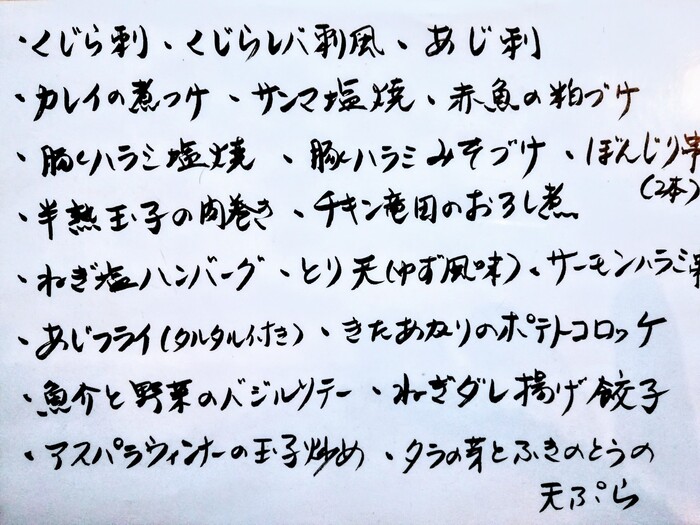 ・くじら刺 ・くじらレバ刺風 ・あじ刺
・カレイの煮つけ ・サンマ塩焼 ・赤魚の粕づけ
・豚ハラミ塩焼 ・豚ハラミみそづけ ・ぼんじり串
(2本)
・半熟玉子の肉巻き ・チキン竜田のおろし煮
・ねぎ塩ハンバーグ ・とり天(ゆず風味) ・サーモンハラミ串
・あじフライ(タルタル付き) ・きたあかりのポテトコロッケ
・魚介と野菜のバジルソテー ・ねぎダレ揚げ餃子
・アスパラウィンナーの玉子炒め ・タラの芽とふきのとうの
天ぷら